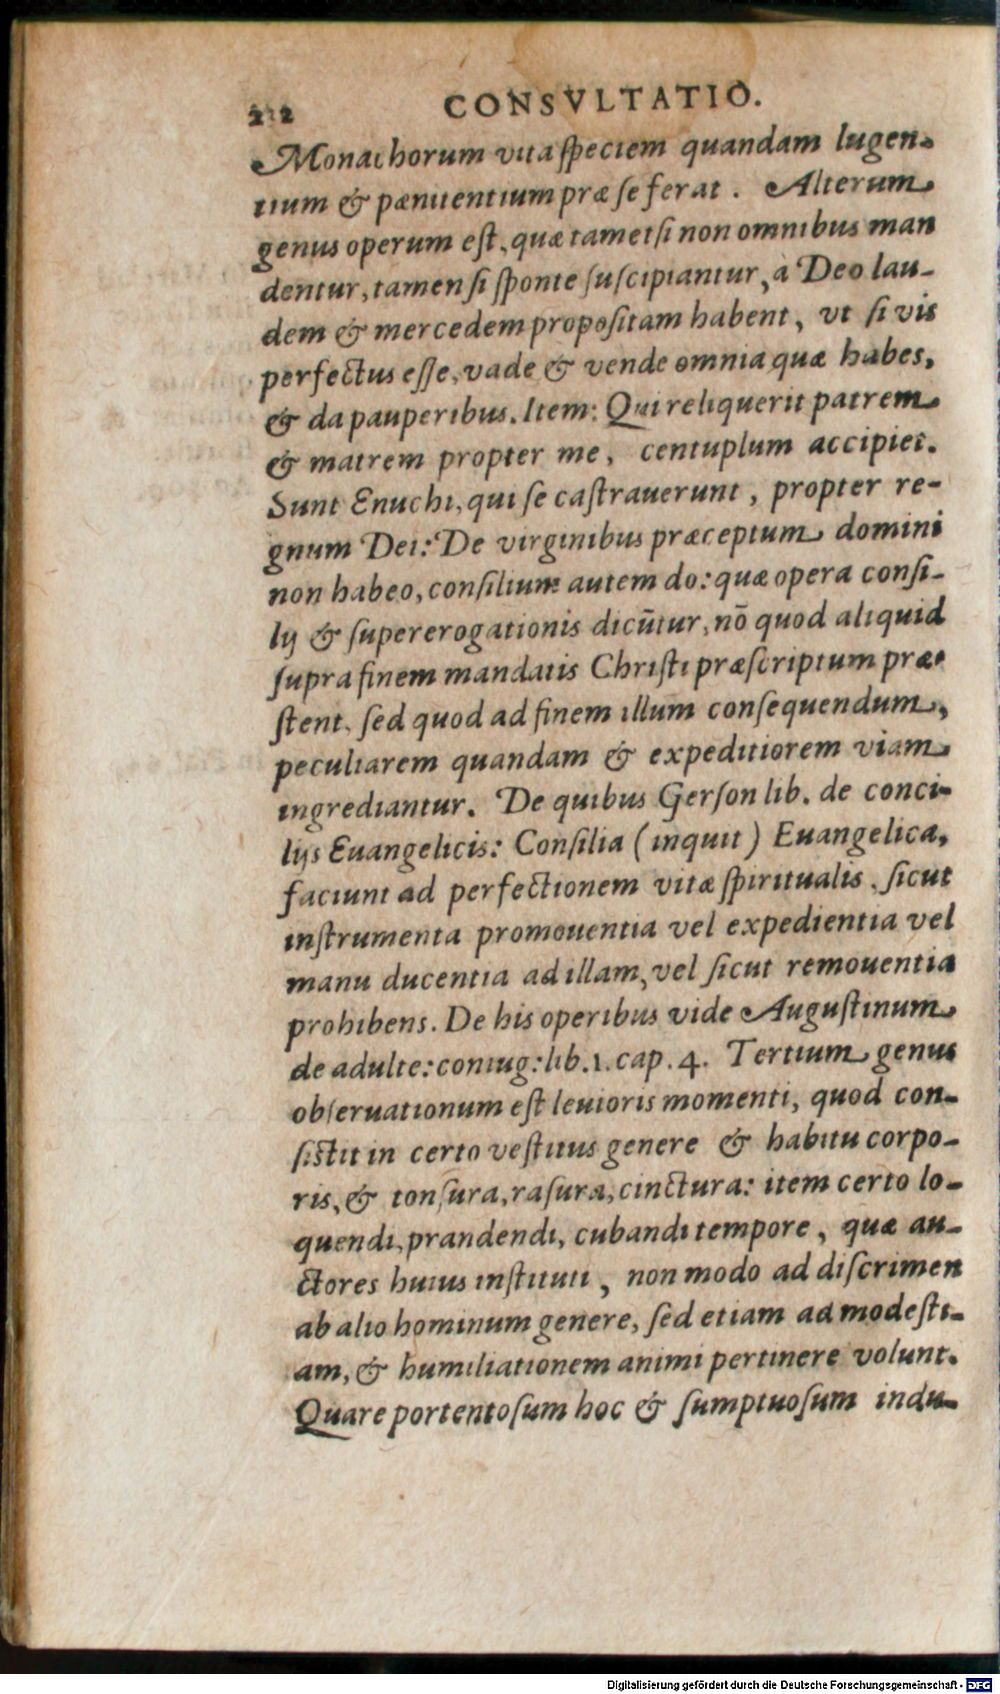 212 CONSVLTATIO.
Monachorum vita speciem quandam lugen-
tium & pænitentium præ se ferat. Alterum
genus operum est, quæ tametsi non omnibus man
dentur, tamen si sponte suscipiantur, à Deo lau-
dem & mercedem propositam habent, vt si vis
perfectus esse, vade & vende omnia quæ habes,
& da pauperibus. Item: Qui reliquerit patrem
& matrem propter me, centuplum accipiet.
Sunt Enuchi, qui se castrauerunt, propter re-
gnum Dei: De virginibus præceptum domini
non habeo, consilium autem do: quæ opera consi-
lij & supererogationis dicūtur, nō quod aliquid
supra finem mandatis Christi præscriptum præ-
stent, sed quod ad finem illum consequendum,
peculiarem quandam & expeditiorem viam
ingrediantur. De quibus Gerson lib. de conci-
lijs Euangelicis: Consilia (inquit) Euangelica,
faciunt ad perfectionem vitæ spiritualis, sicut
instrumenta promouentia vel expedientia vel
manu ducentia ad illam, vel sicut remouentia
prohibens. De his operibus vide Augustinum
de adulte: coniug: lib. 1. cap. 4. Tertium genus
obseruationum est leuioris momenti, quod con-
sistit in certo vestitus genere & habitu corpo-
ris, & tonsura, rasura, cinctura: item certo lo-
quendi, prandendi, cubandi tempore, quæ au-
ctores huius instituti, non modo ad discrimen
ab alio hominum genere, sed etiam ad modesti-
am, & humiliationem animi pertinere volunt.
Quare portentosum hoc & sumptuosum indu-
Digitalisierung gefördert durch die Deutsche Forschungsgemeinschaft - DFG